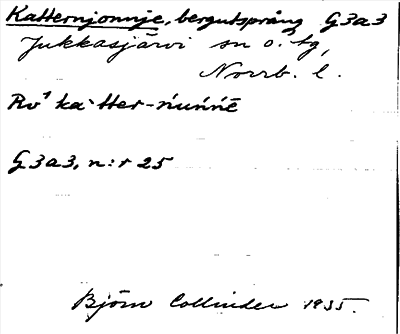 Katternjonnje, bergutsprång G3a3
Jukkasjärvi sn o. tg,
Norrb. l.
Rv¹ ka·tter-ńuńńē
G3a3, n:r 25
Björn Collinder 1935.